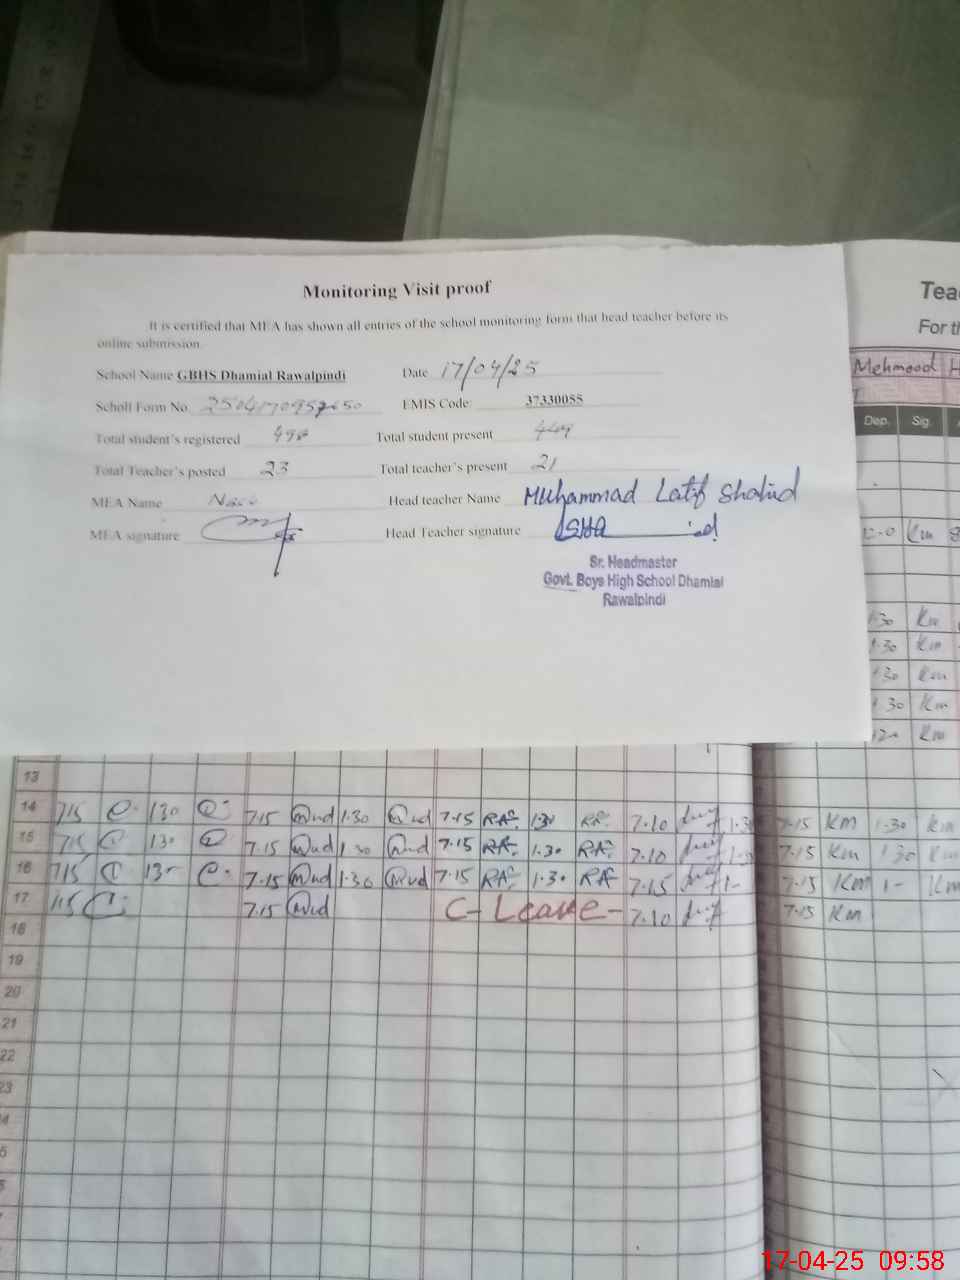 Monitoring Visit proof
It is certified that MEA has shown all entries of the school monitoring form that head teacher before its
online submission.
School Name GBHS Dhamial Rawalpindi Date 17/04/25
Scholl Form No. EMIS Code 37330055
Total student's registered 498 Total student present 449
Total Teacher's posted 23 Total teacher's present 21
MEA Name Head teacher Name Muhammad Latif Shahid
MEA signature Head Teacher signature
Sr. Headmaster
Govt. Boys High School Dhamial
Rawalpindi
Tea
For th
Mehmood H
Dep. Sig.
Km
1.30 Km
1.30 Km
1.30 Km
1.30 Km
Km
13
14 7.15 1.30 7.15 1.30 7.15 RAF 1.30 RAF 7.10 1.3 7.15 KM 1.30 KM
15 7.15 1.30 7.15 1.30 7.15 RAF 1.30 RAF 7.10 7.15 Km 1.30 Km
16 7.15 7.15 1.30 7.15 RAF 1.30 RAF 7.15 7.15 KM 1- KM
17 7.15 C-Leave- 7.10 7.15 KM
18
19
20
21
22
23
17-04-25 09:58